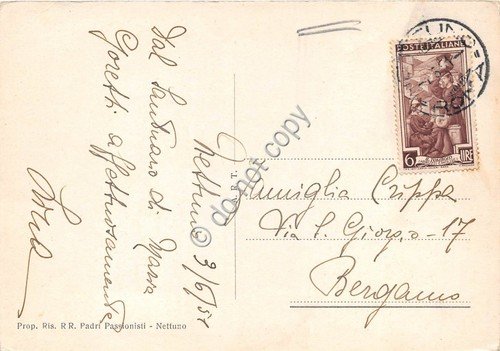 Nettuno 3/6/51
Dal Santuario di Maria
Goretti affettuosamente
POSTE ITALIANE
6 LIRE
NETTUNO
ROMA
Famiglia Crippa
Via S. Giorgio - 17
Bergamo
Prop. Ris. RR. Padri Passionisti - Nettuno
do not copy